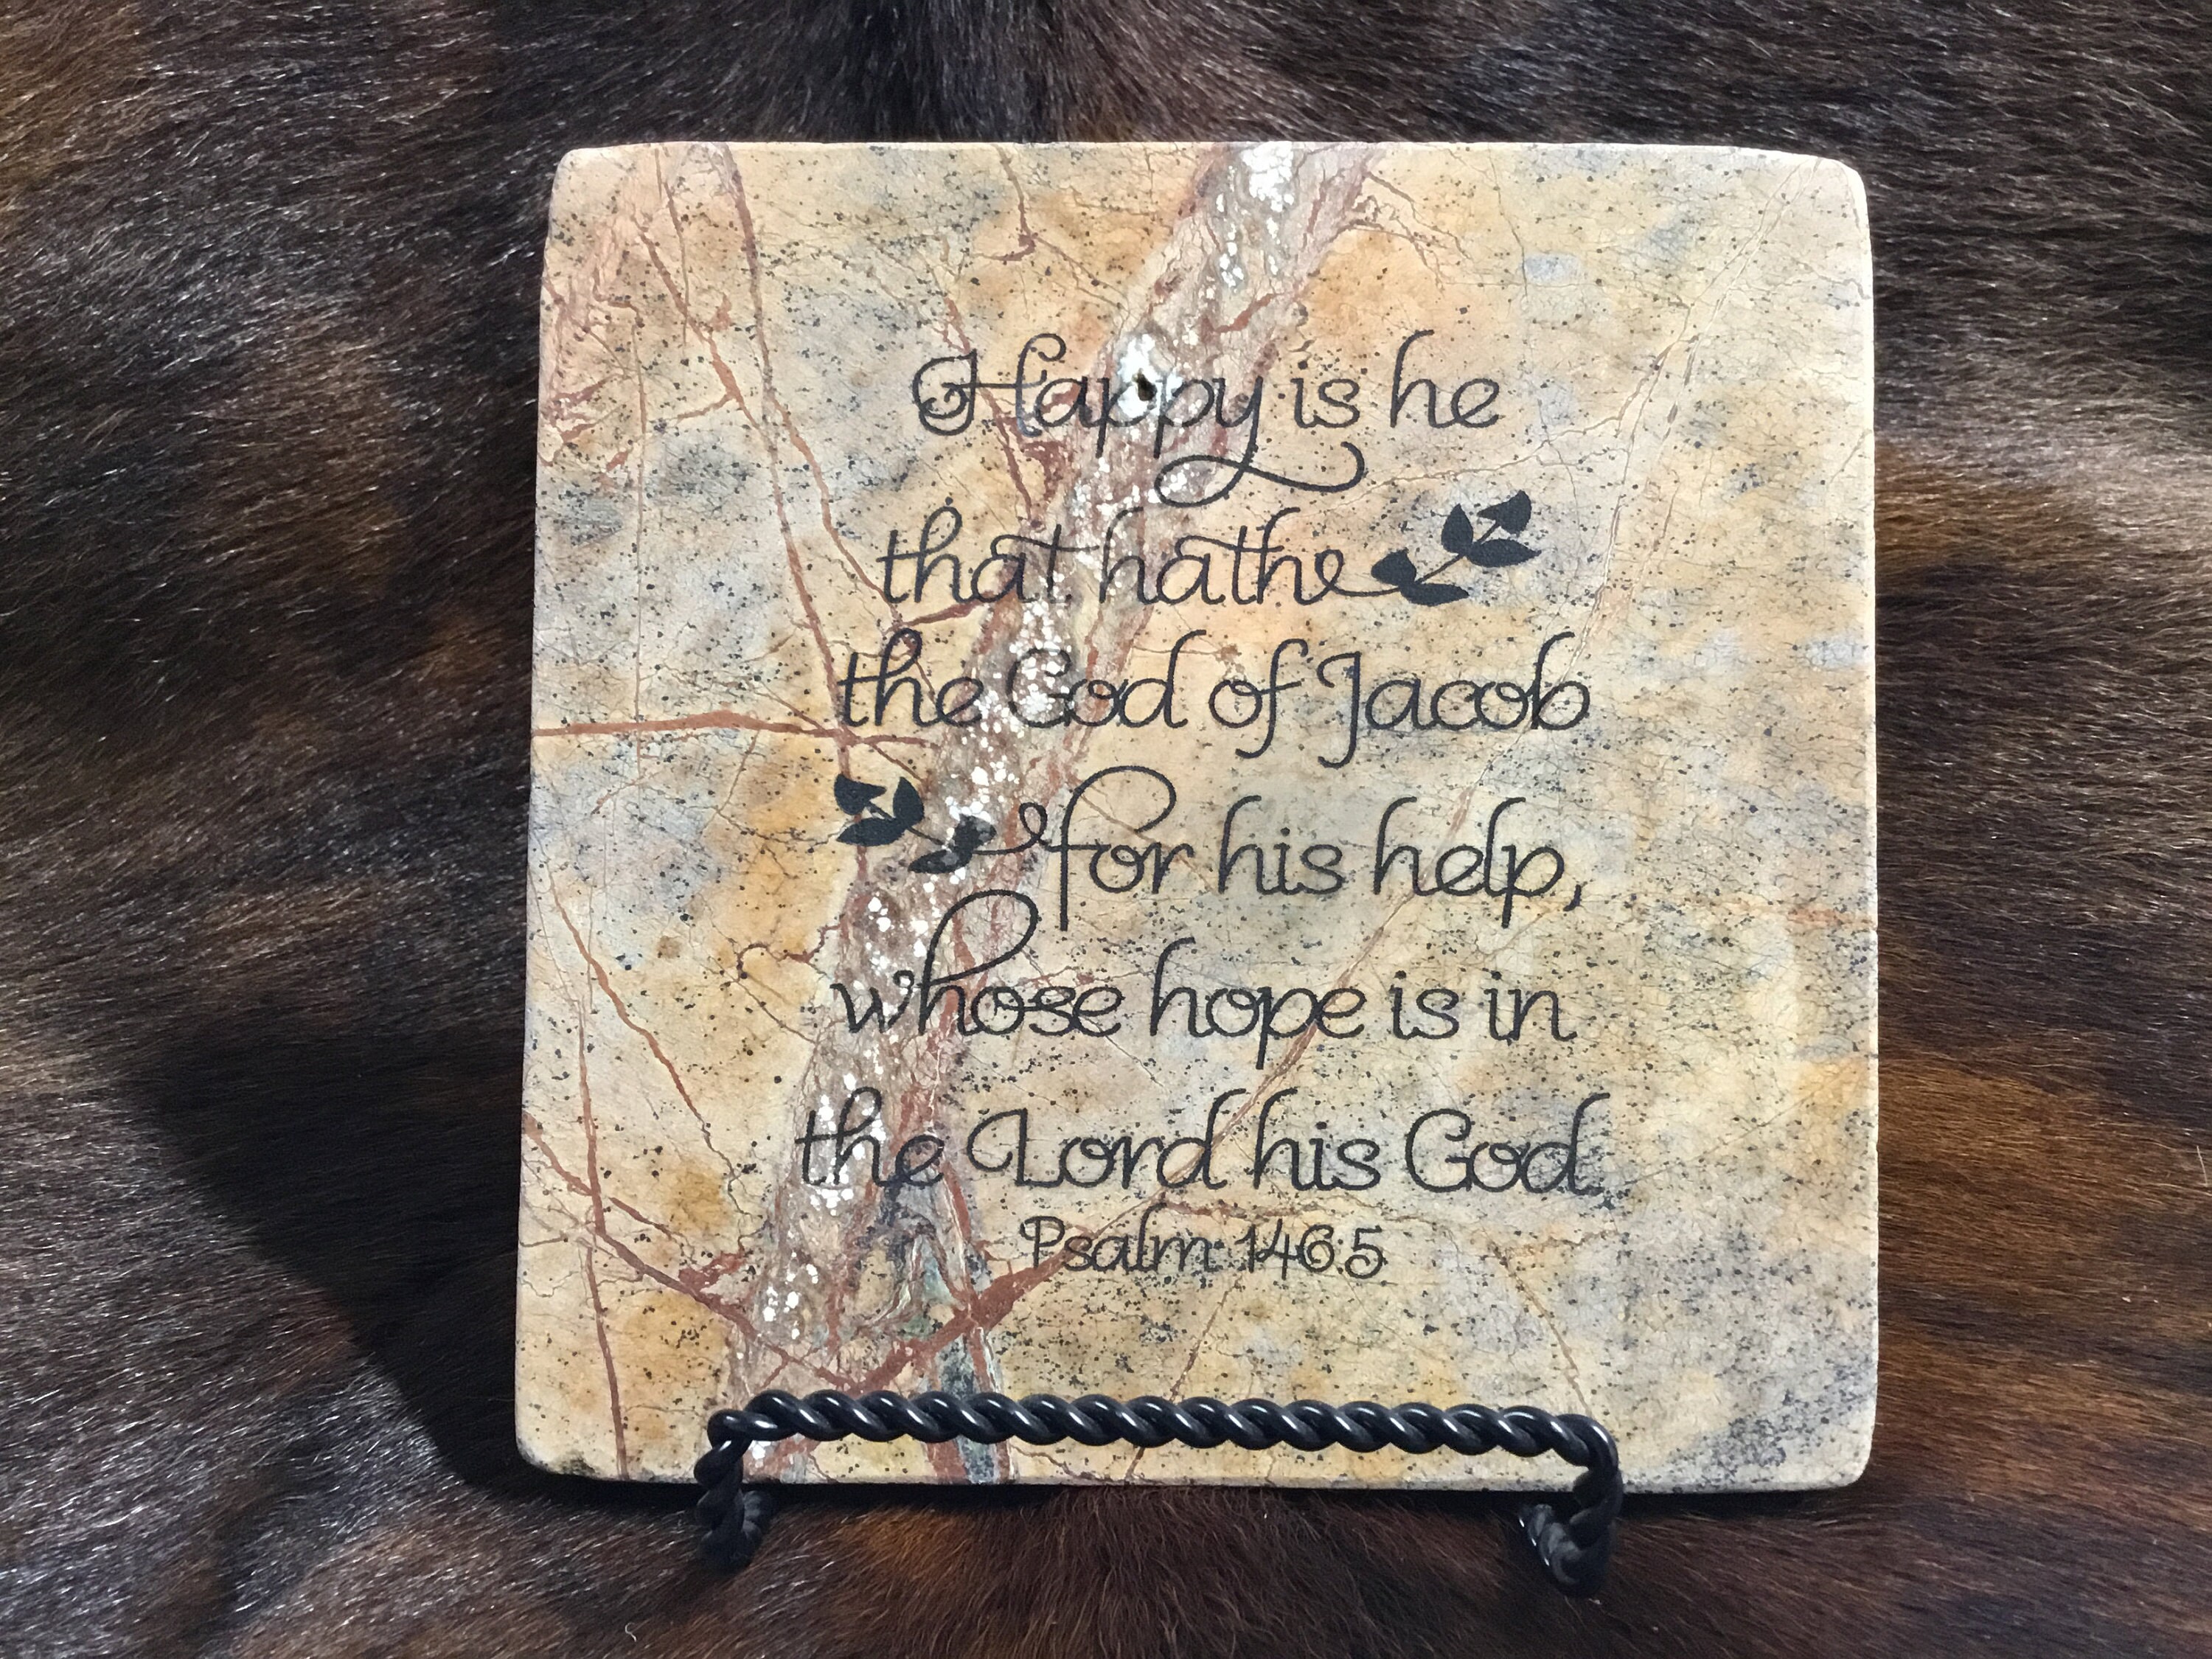 Happy is he
that hath
the God of Jacob
for his help,
whose hope is in
the Lord his God.
Psalm 146:5